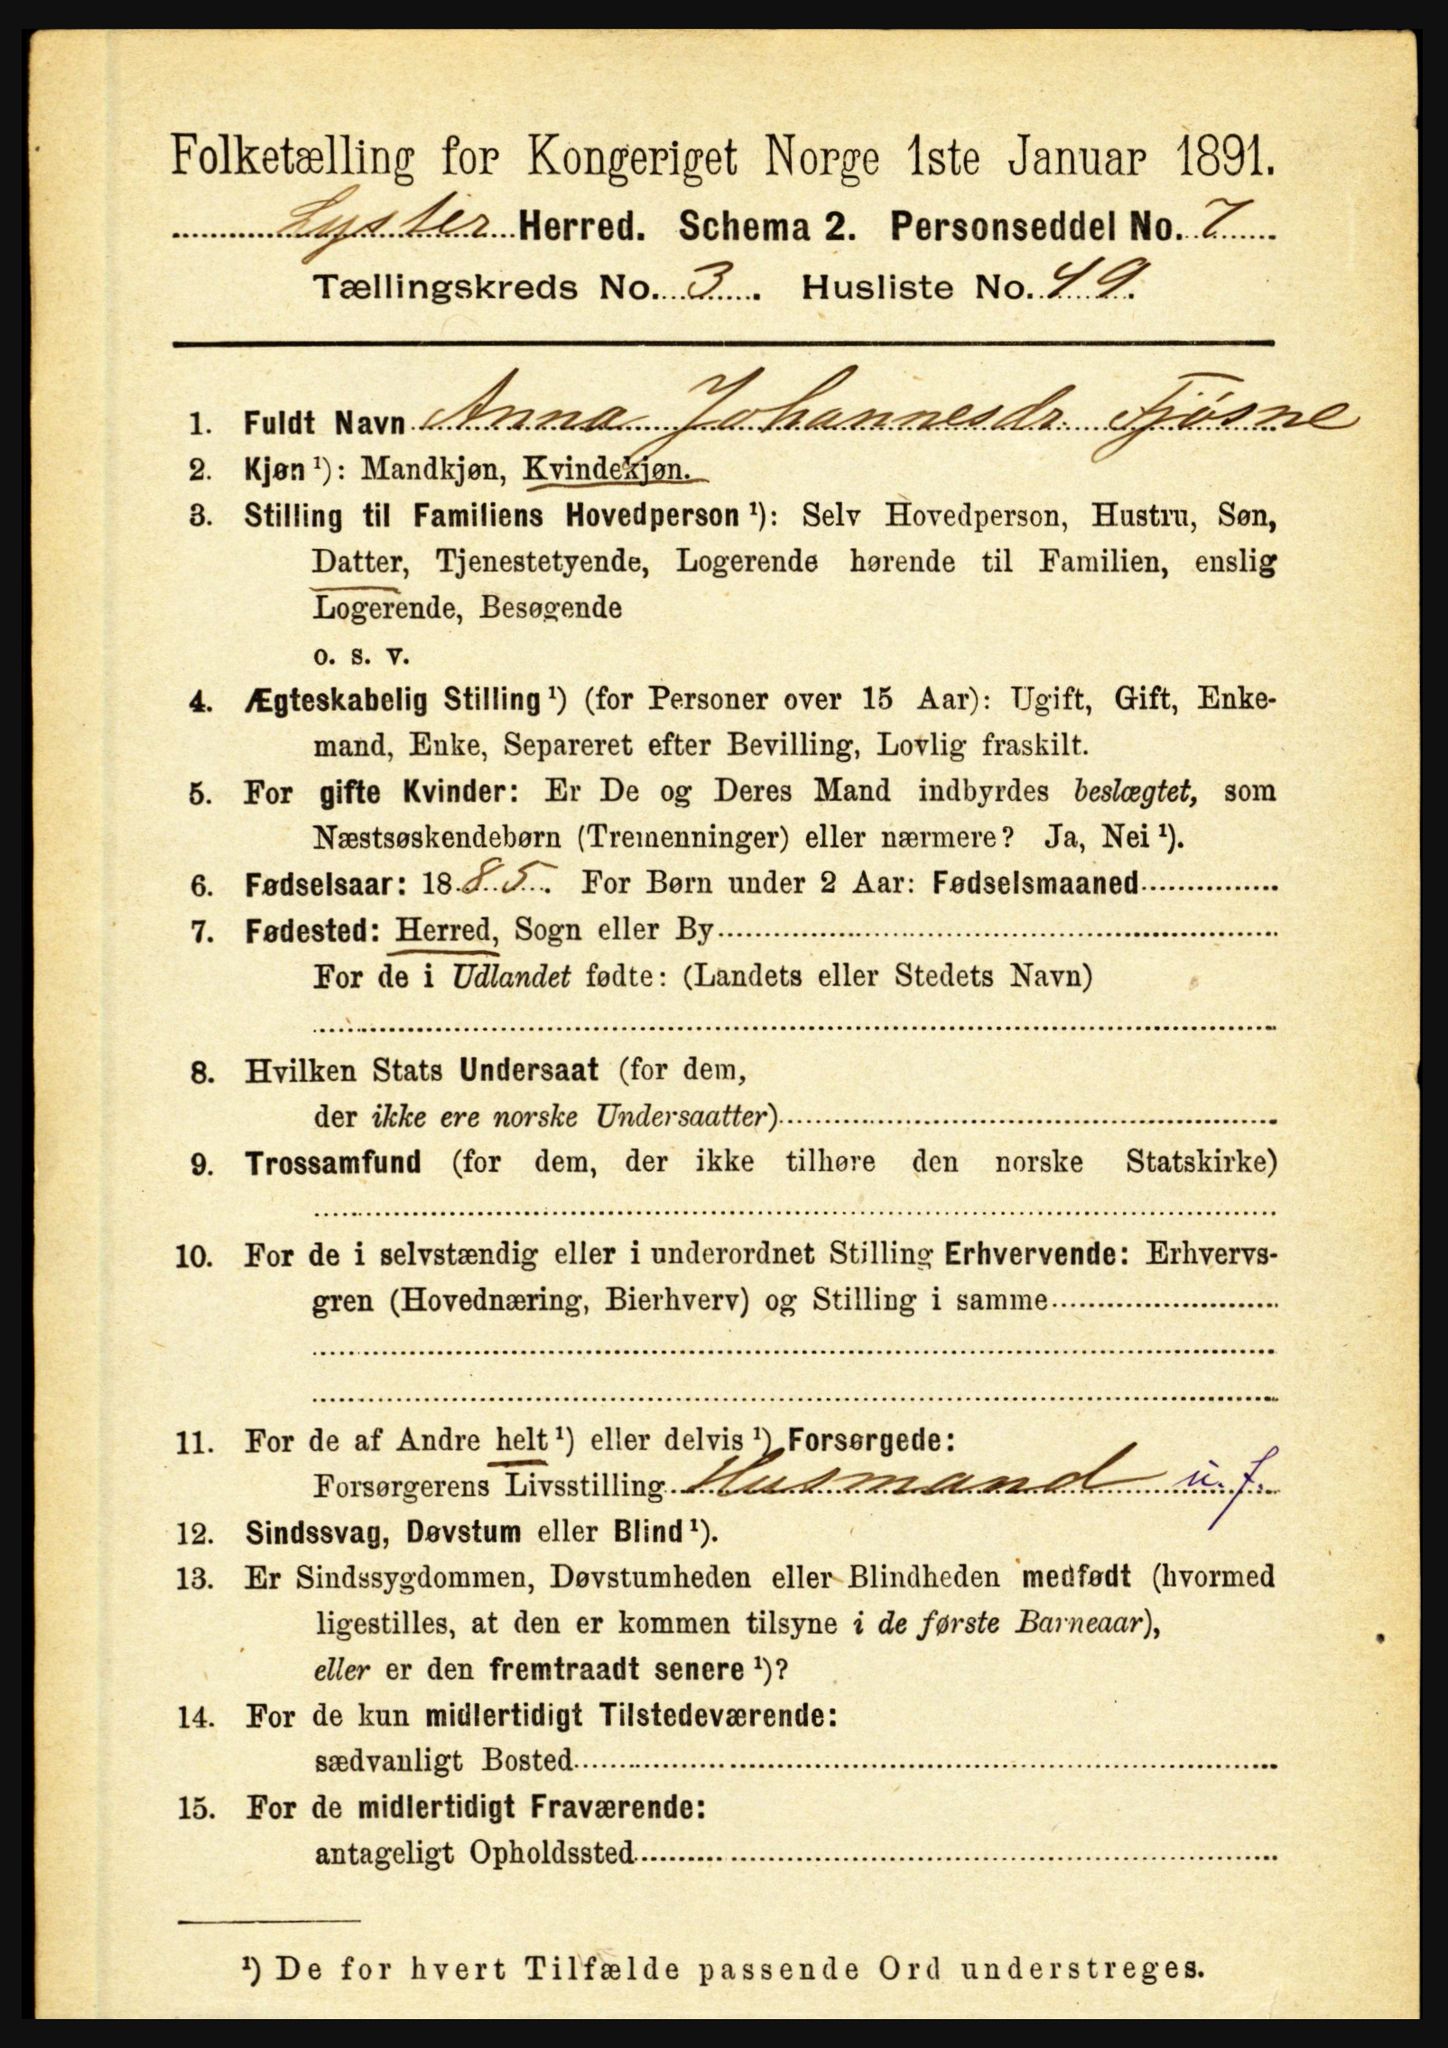 Folketælling for Kongeriget Norge 1ste Januar 1891.
Lyster Herred. Schema 2. Personseddel No. 7
Tællingskreds No. 3. Husliste No. 49.
1. Fuldt Navn Anna Johannesdr. Fjøsne
2. Kjøn ¹): Mandkjøn, Kvindekjøn.
3. Stilling til Familiens Hovedperson ¹): Selv Hovedperson, Hustru, Søn,
Datter, Tjenestetyende, Logerende hørende til Familien, enslig
Logerende, Besøgende
o. s. v.
4. Ægteskabelig Stilling ¹) (for Personer over 15 Aar): Ugift, Gift, Enke-
mand, Enke, Separeret efter Bevilling, Lovlig fraskilt.
5. For gifte Kvinder: Er De og Deres Mand indbyrdes beslægtet, som
Næstsøskendebørn (Tremenninger) eller nærmere? Ja, Nei ¹).
6. Fødselsaar: 1885. For Børn under 2 Aar: Fødselsmaaned
7. Fødested: Herred, Sogn eller By
For de i Udlandet fødte: (Landets eller Stedets Navn)
8. Hvilken Stats Undersaat (for dem,
der ikke ere norske Undersaatter)
9. Trossamfund (for dem, der ikke tilhøre den norske Statskirke)
10. For de i selvstændig eller i underordnet Stilling Erhvervende: Erhvervs-
gren (Hovednæring, Bierhverv) og Stilling i samme
11. For de af Andre helt ¹) eller delvis ¹) Forsørgede:
Forsørgerens Livsstilling Husmand u. j.
12. Sindssvag, Døvstum eller Blind ¹).
13. Er Sindssygdommen, Døvstumheden eller Blindheden medfødt (hvormed
ligestilles, at den er kommen tilsyne i de første Barneaar),
eller er den fremtraadt senere ¹)?
14. For de kun midlertidigt Tilstedeværende:
sædvanligt Bosted
15. For de midlertidigt Fraværende:
antageligt Opholdssted
¹) De for hvert Tilfælde passende Ord understreges.